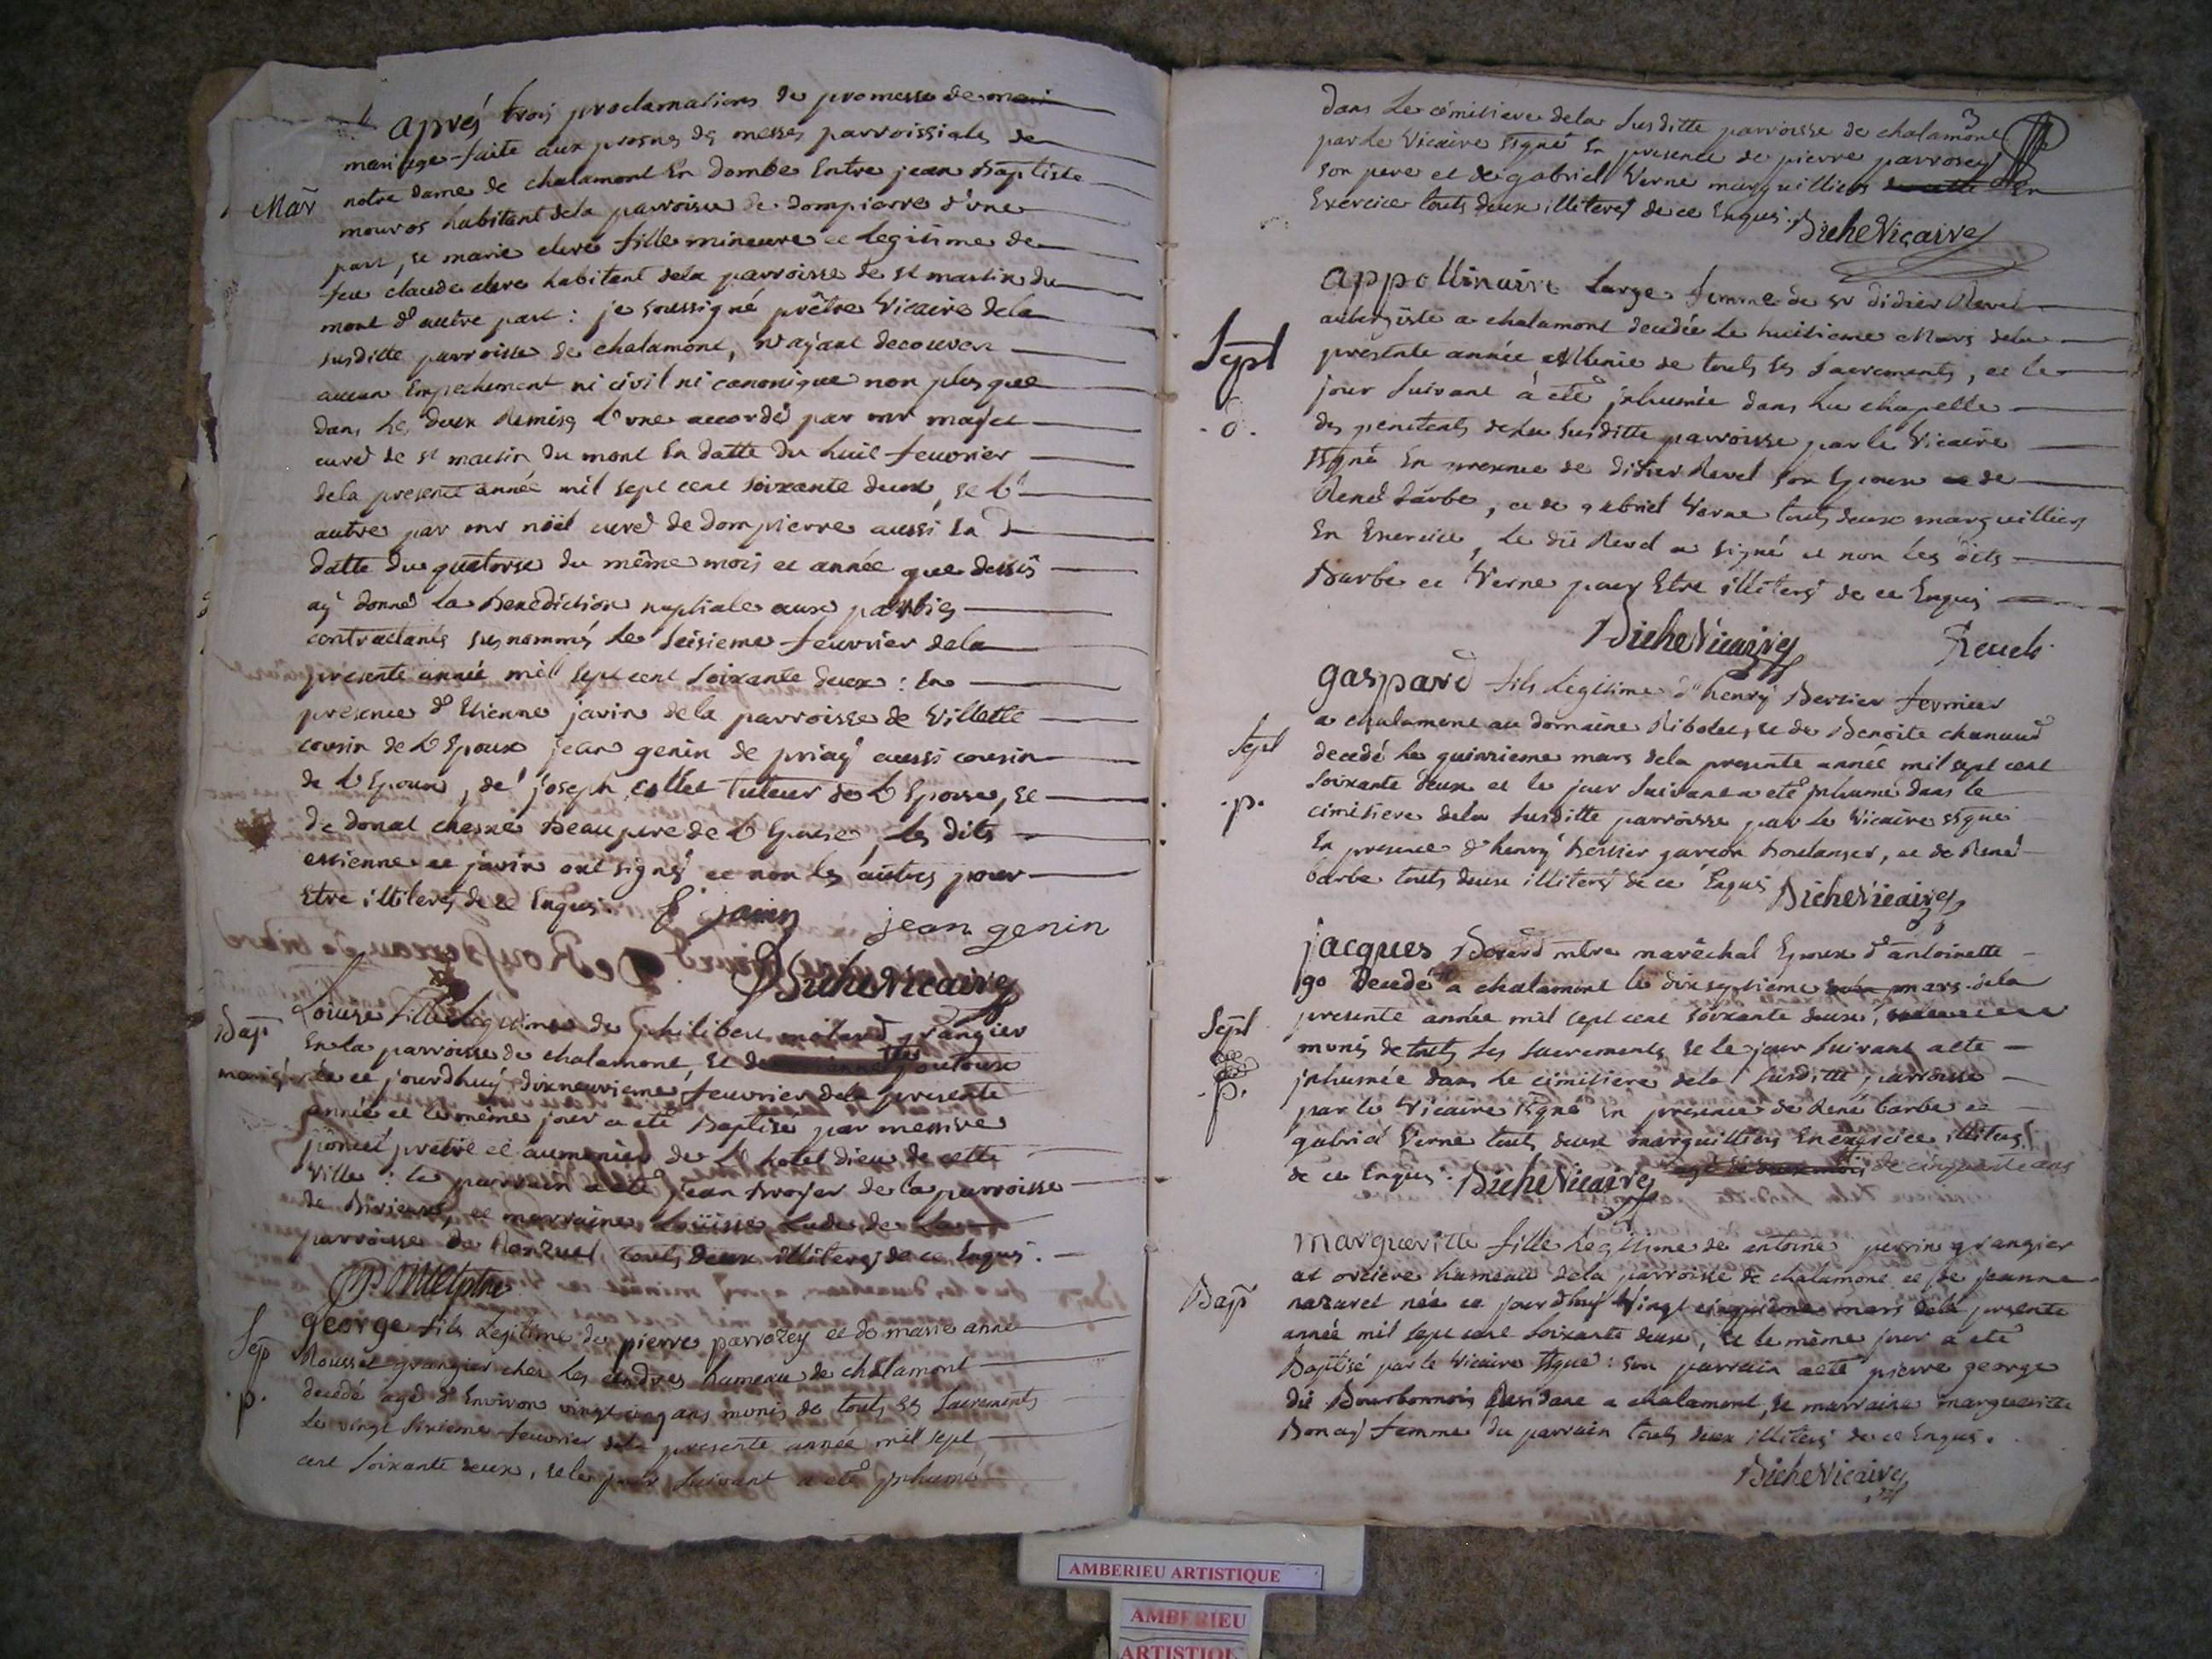 après trois proclamations de promesse de mari
mariage faite aux prosnes des messes parroissiale de
Mar
notre dame de chalamont En dombe Entre jean Baptiste
mouros habitant dela parroisse de dompierre d'une
part, et marie clere fille mineure et legitime de
feu claude clere habitant dela parroisse de st martin du
mont d'autre part : je soussigné prêtre Vicaire dela
susditte parroisse de chalamont, n'ayant decouvert
aucun Empechement ni civil ni canonique non plus que
dans les deux Remises l'une accordé par mr
curé de st martin du mont En datte du huit feuvrier
dela presente année mil sept cent soixante deux, et l'
autre par mr noël curé de dompierre aussi En d
datte du quatorse du même mois et année que dessus
ay donné la Benediction nuptiale aux parties
contractants susnommés le seisieme feuvrier dela
presente année mil sept cent soixante deux : En
presence d'Etienne javin dela parroisse de Villette
cousin de l'Epoux jean genin de priay aussi cousin
de l'Epoux, de joseph collet tuteur de l'Epouse, et
de donat chesne Beaupere de l'Epouse, les dits
estienne et javin ont signés et non les autres pour
Etre illiterés de ce Enquis. E javin jean genin
Biche Vicaire
Bap
Louise fille legitime de philibert molard grangier
En la parroisse de chalamont, Et de goutoux
née ce jourdhuy dixneuvieme feuvrier dela presente
année et le même jour a eté Baptisé par messire
poncet pretre et aumonier de l'hotel dieu de cette
Ville : le parrain a eté jean Broyer de la parroisse
de Birieux, et marraine Loüisse Lude de la
parroisse de Ronzuel touts deux illiterés de ce Enquis.
Sep
.p.
george fils legitime de pierre parrozey et de marie anne
Rousset grangier chez les cendres hameau de chalamont
decedé agé d'Environ vingt cinq ans munis de touts ses sacrements
Le vingt sixieme feuvrier dela presente année mil sept
cent soixante deux, et le jour suivant a eté jnhumé
3
dans le cimitiere dela susditte parroisse de chalamont
par le Vicaire signé En presence de pierre parrosey
son pere et de gabriel Verne marguilliers En
Exercice touts deux illiterés de ce Enquis. Biche Vicaire
Sept
. o .
appollinaire Large femme de sr didier Revel
aubergiste a chalamont decedée le huitieme Mars dela
presente année, Munie de touts ses sacrements, et le
jour suivant à eté jnhumée dans la chapelle
des penitents dela susditte parroisse par le Vicaire
signé En presence de didier Revel son Epoux et de
René barbe, et de gabriel Verne touts deux marguilliers
En Exercice, Le dit Revel a signé et non les dits
Barbe et Verne pour Etre illiterés de ce Enquis
Biche Vicaire
Sept
.p.
gaspard fils legitime d'henry Bersier fermier
a chalamont au domaine Ribolet, et de Benoite chanaud
decedé le quinzieme mars dela presente année mil sept cent
soixante deux et le jour suivant a eté jnhumé dans le
cimitiere dela susditte parroisse par le Vicaire signé
En presence d'henry Bersier garcon Boulanger, et de René
barbe touts deux illiterés de ce Enquis Biche Vicaire
Sept
.p.
jacques Bovard mtre maréchal Epoux d'antoinette
go Decedé a chalamont le dixseptieme mars dela
presente année mil sept cent soixante deux,
munis de touts ses sacrements et le jour suivant a ete
jnhumée dans le cimitiere dela susditte parroisse
par le Vicaire signé En presence de René barbe et
gabriel Verne touts deux marguilliers En exercice illiterés
de ce Enquis. Biche Vicaire agé de cinquante ans
Bap
margueritte fille legitime de antoine perrin grangier
at orciere hameau dela parroisse de chalamont et de jeanne
nazaret née ce jourdhuy Vingt cinquieme mars dela presente
année mil sept cent soixante deux, et le même jour a eté
Baptisé par le Vicaire signé : son parrain a eté pierre george
dit Bourbonnois Residant a chalamont, et marraine margueritte
Bonay femme du parrain touts deux illiterés de ce Enquis.
Biche Vicaire
AMBERIEU ARTISTIQUE
AMBERIEU
ARTISTIQUE